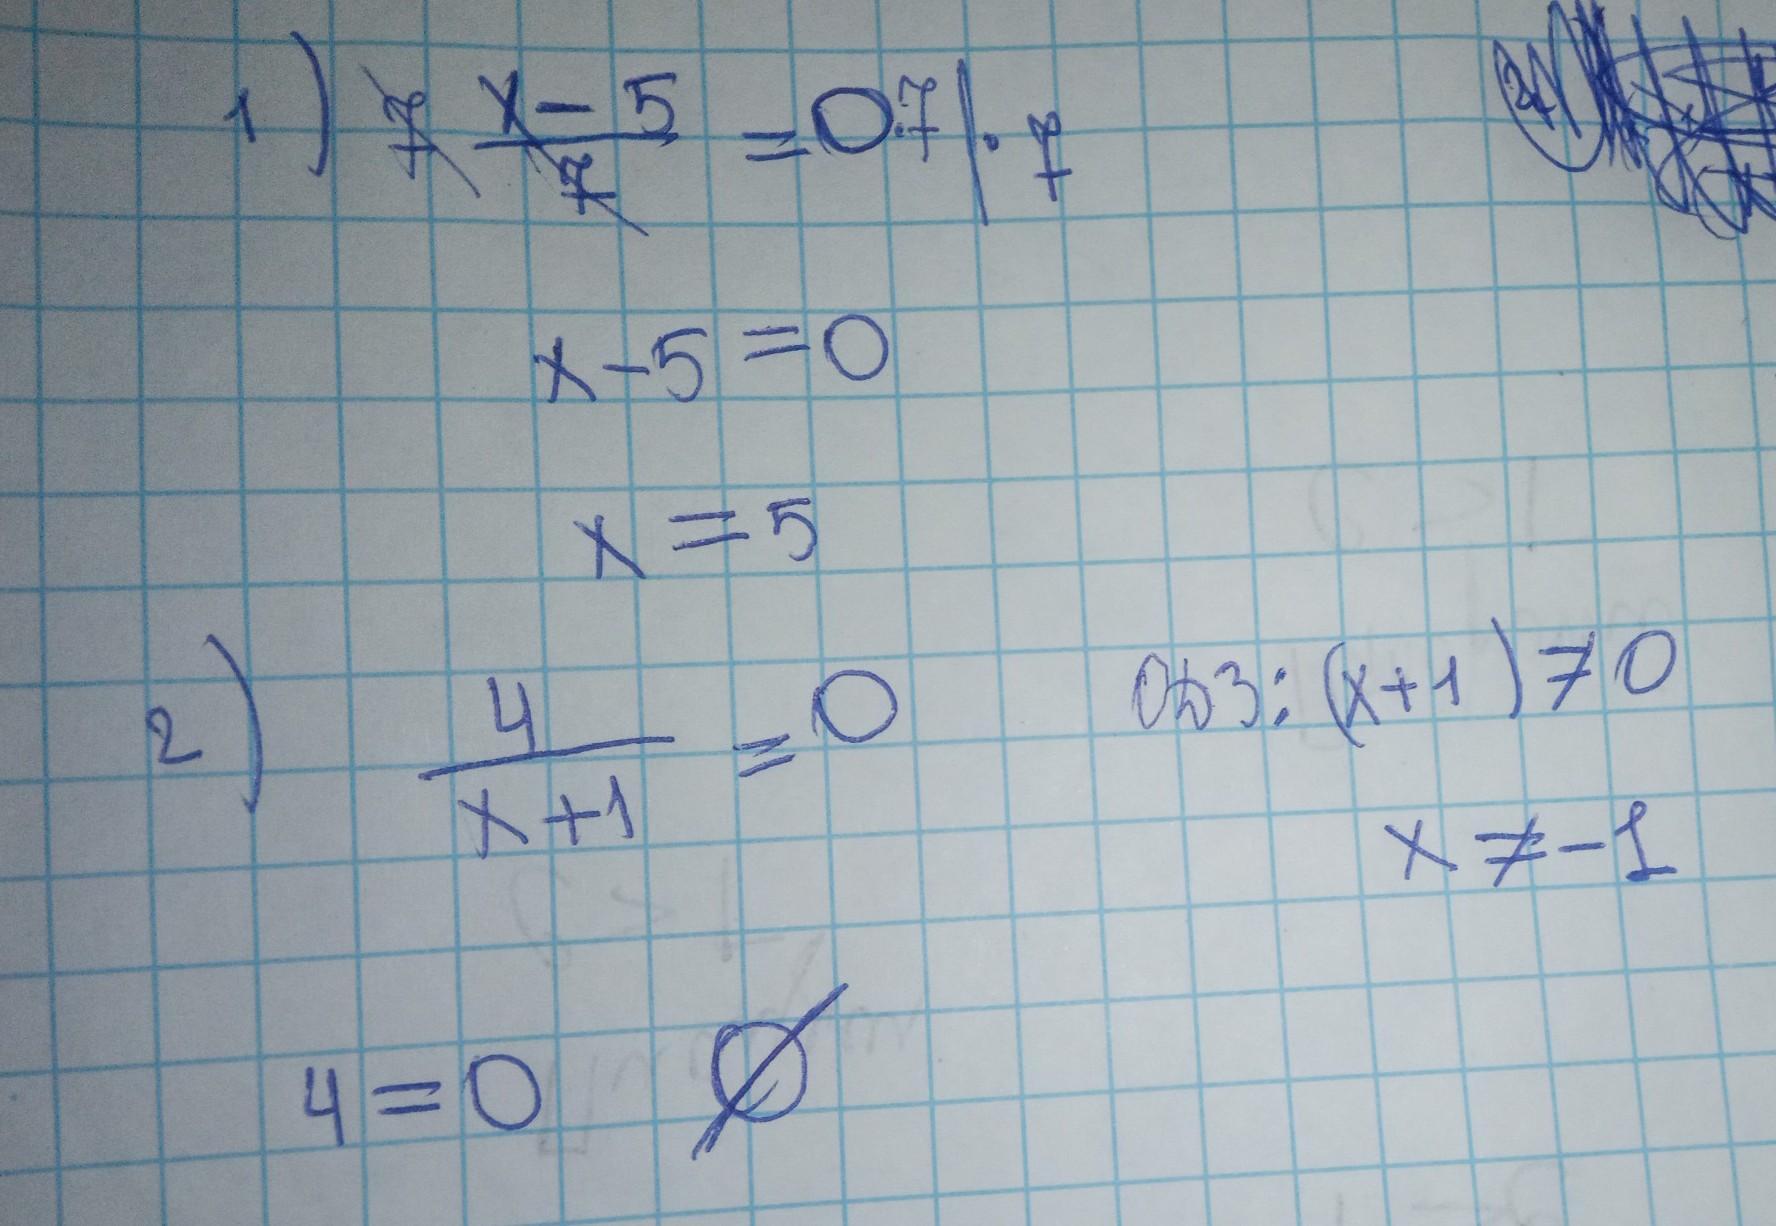 1) 7 x-5/7 = 0·7 |·7
x-5=0
x=5
2) 4/x+1 = 0 ОДЗ: (x+1)≠0
x≠-1
4=0 Ø